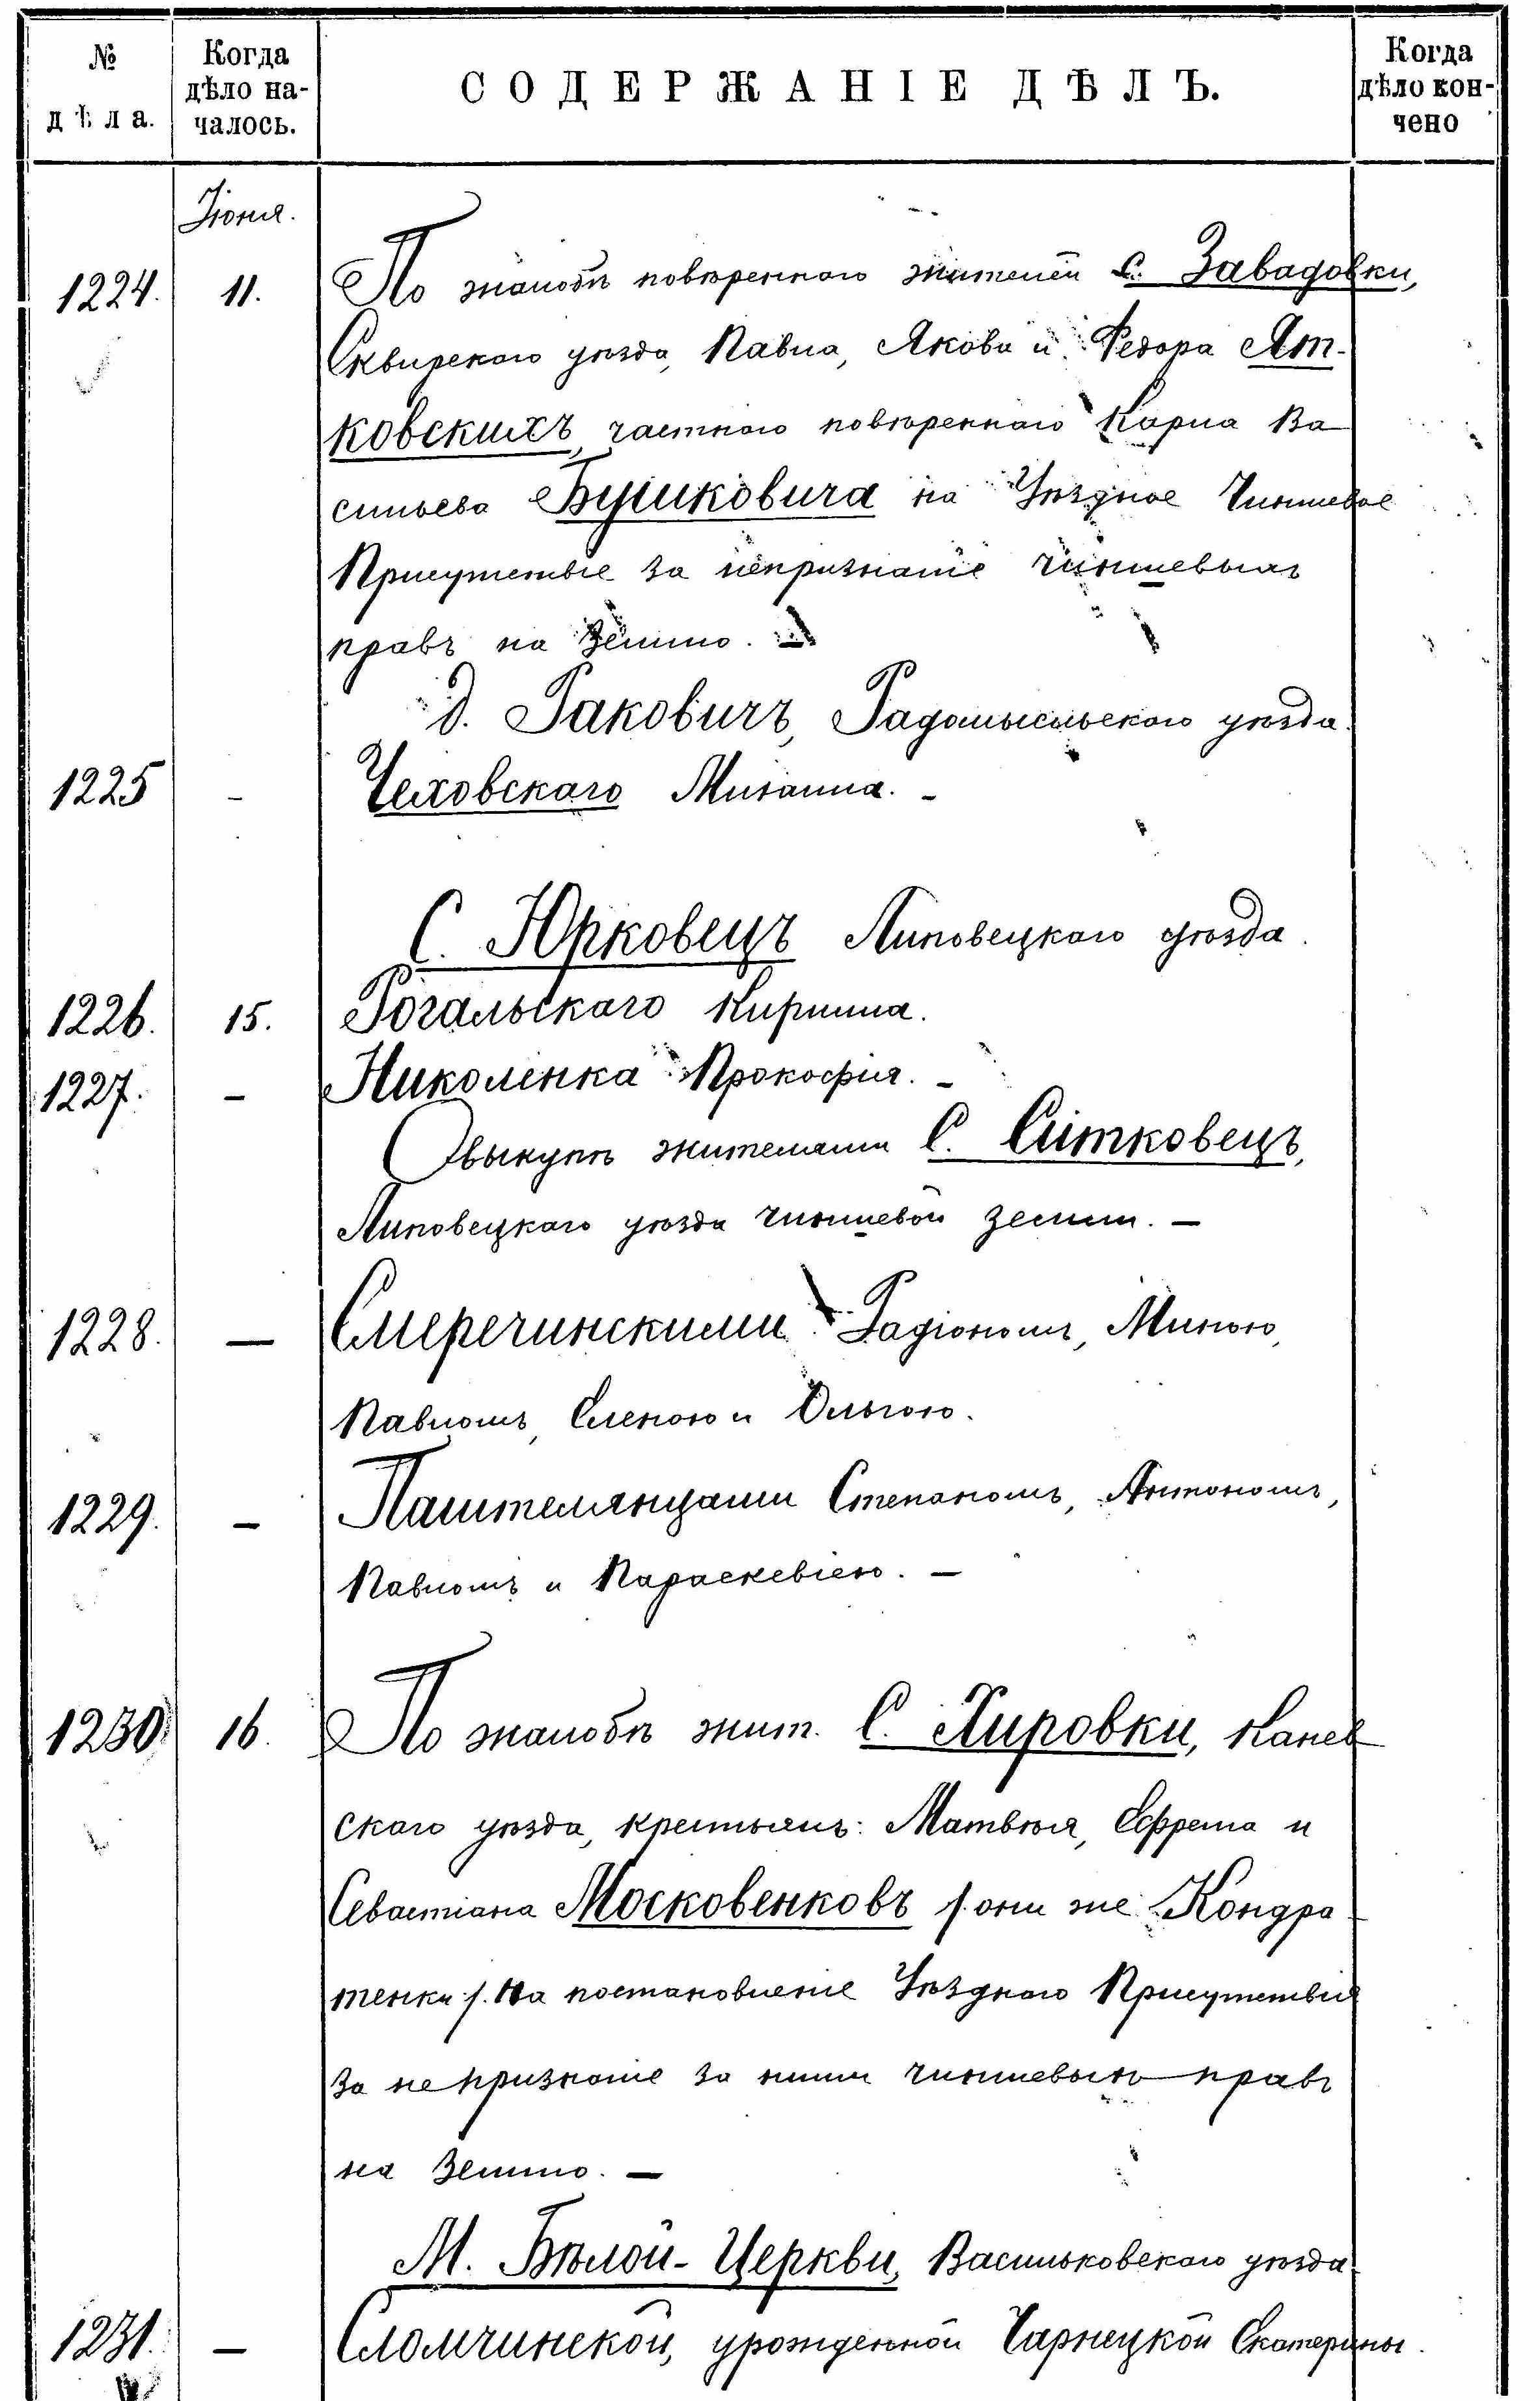 № дѣла.
Когда дѣло началось.
СОДЕРЖАНІЕ ДѢЛЪ.
Когда дѣло кончено
Іюня.
1224. 11. По жалобѣ повѣреннаго жителей с. Завадовки,
Сквирскаго уѣзда, Павла, Якова и Федора Ят-
ковскихъ, частнаго повѣреннаго Карпа Ва
сильева Бушковича на Уѣздное Чиншевое
Присутствіе за непризнаніе чиншевыхъ
правъ на землю. —
д. Раковичъ, Радомысльскаго уѣзда.
1225 - Чеховскаго Михаила. -
С. Юрковецъ Липовецкаго уѣзда.
1226. 15. Рогальскаго Кирилла.
1227. - Николенка Прокофія. -
О выкупѣ жителями С. Ситковецъ,
Липовецкаго уѣзда чиншевой земли. —
1228. — Смеречинскими Радіономъ, Миною,
Павломъ, Еленою и Ольгою.
1229. - Паштелянцами Степаномъ, Антономъ,
Павломъ и Параскевіею. —
1230. 16. По жалобѣ жит. С. Хировки, Канев
скаго уѣзда, крестьянъ: Матвѣя, Ефрема и
Севастіана Московенковъ /. они же Кондра-
тенки ./. На постановленіе Уѣзднаго Присутствія
за непризнаніе за ними чиншевыхъ правъ
на землю. —
М. Бѣлой-Церкви, Васильковскаго уѣзда.
1231. — Сломчинской, урожденной Чарнецкой Екатерины.